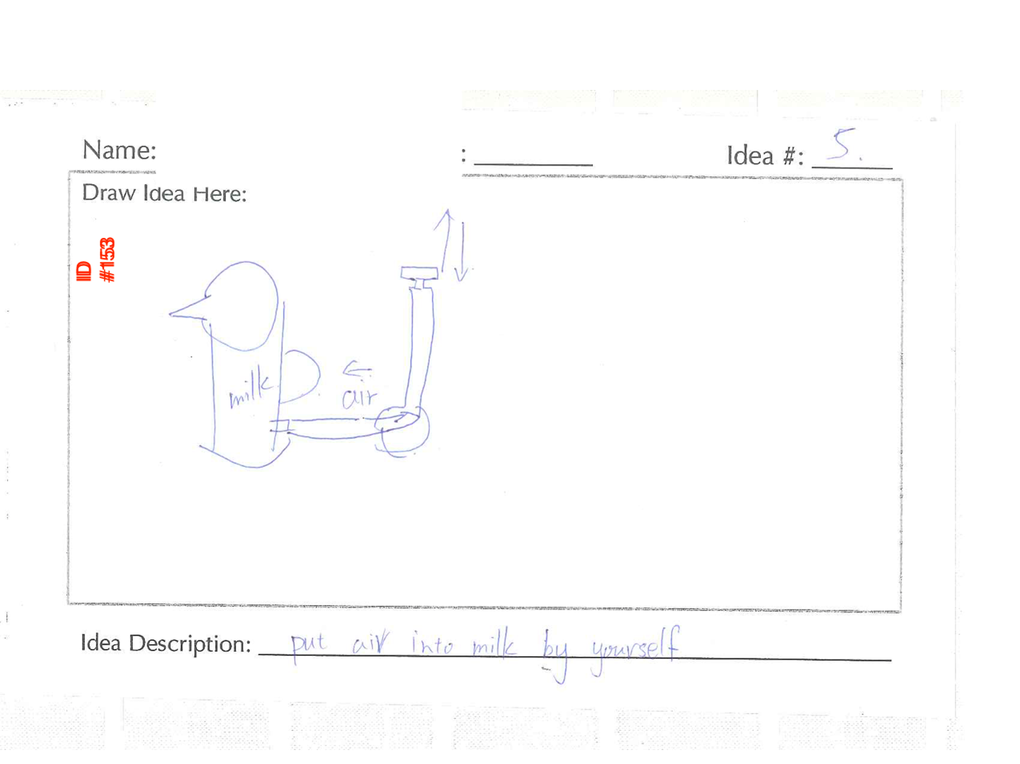 Name:
: Idea #: 5.
Draw Idea Here:
IID
#153
milk
air
Idea Description: put air into milk by yourself